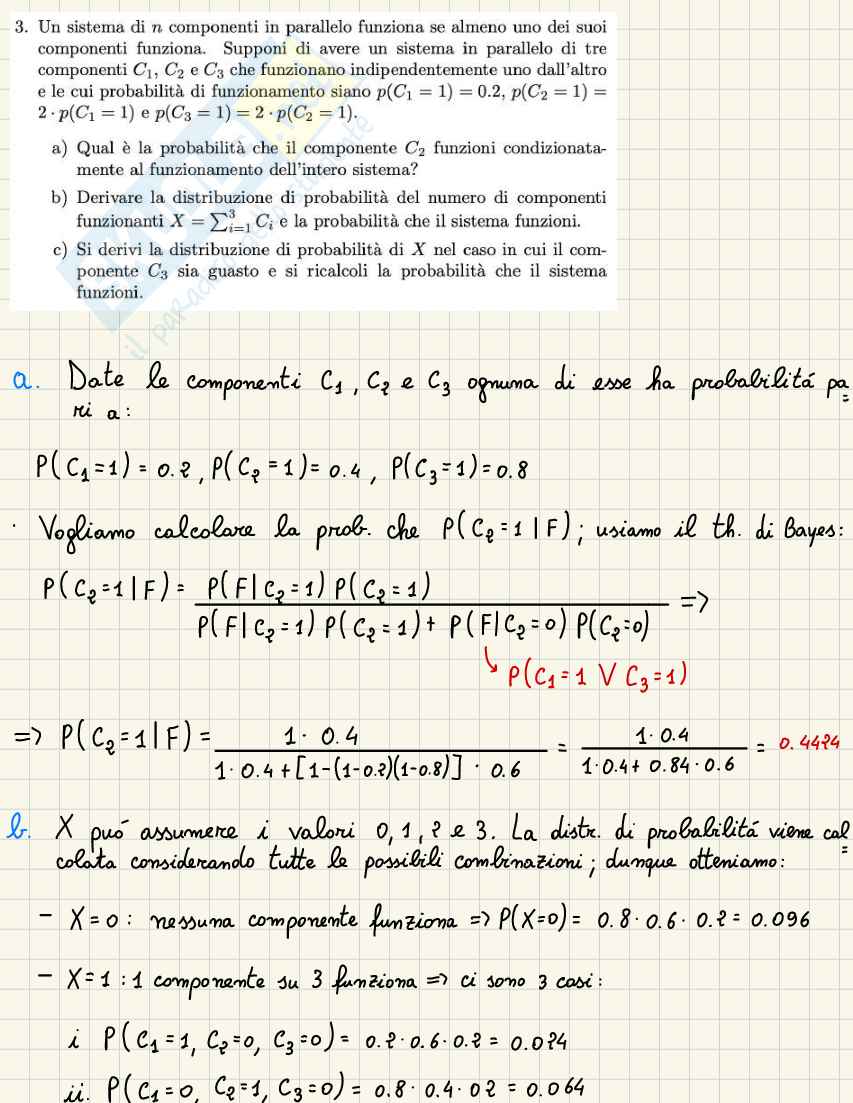 3. Un sistema di n componenti in parallelo funziona se almeno uno dei suoi
componenti funziona. Supponi di avere un sistema in parallelo di tre
componenti C₁, C₂ e C₃ che funzionano indipendentemente uno dall'altro
e le cui probabilità di funzionamento siano p(C₁ = 1) = 0.2, p(C₂ = 1) =
2 · p(C₁ = 1) e p(C₃ = 1) = 2 · p(C₂ = 1).
a) Qual è la probabilità che il componente C₂ funzioni condizionata-
mente al funzionamento dell'intero sistema?
b) Derivare la distribuzione di probabilità del numero di componenti
funzionanti X = ∑³ᵢ₌₁ Cᵢ e la probabilità che il sistema funzioni.
c) Si derivi la distribuzione di probabilità di X nel caso in cui il com-
ponente C₃ sia guasto e si ricalcoli la probabilità che il sistema
funzioni.
a. Date le componenti C₁, C₂ e C₃ ognuna di esse ha probabilitá pa=
ri a:
P(C₁=1) = 0.2, P(C₂=1) = 0.4, P(C₃=1) = 0.8
· Vogliamo calcolare la prob. che P(C₂=1 | F); usiamo il th. di Bayes:
P(C₂=1 | F) = P(F | C₂=1) P(C₂=1) / P(F | C₂=1) P(C₂=1) + P(F | C₂=0) P(C₂=0) =>
↳ P(C₁=1 ∨ C₃=1)
=> P(C₂=1 | F) = 1 · 0.4 / 1 · 0.4 + [1-(1-0.2)(1-0.8)] · 0.6 = 1 · 0.4 / 1 · 0.4 + 0.84 · 0.6 = 0.4424
b. X puó assumere i valori 0, 1, 2 e 3. La distr. di probabilitá viene cal=
colata considerando tutte le possibili combinazioni; dunque otteniamo:
- X=0 : nessuna componente funziona => P(X=0) = 0.8 · 0.6 · 0.2 = 0.096
- X=1 : 1 componente su 3 funziona => ci sono 3 casi:
i P(C₁=1, C₂=0, C₃=0) = 0.2 · 0.6 · 0.2 = 0.024
ii. P(C₁=0, C₂=1, C₃=0) = 0.8 · 0.4 · 0.2 = 0.064